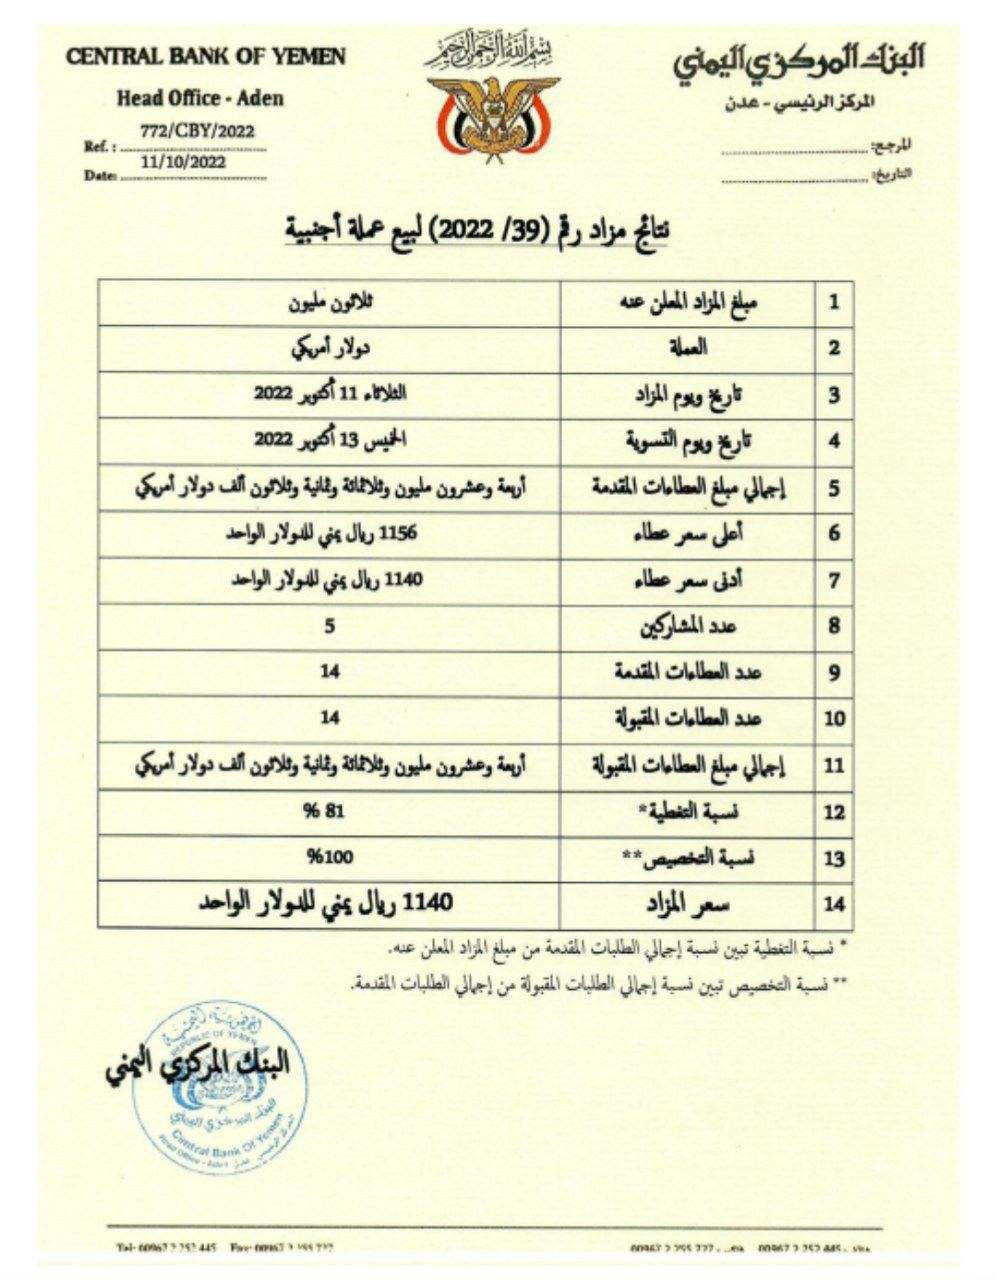 CENTRAL BANK OF YEMEN
Head Office - Aden
Ref. : 772/CBY/2022
Date: 11/10/2022
بسم الله الرحمن الرحيم
البنك المركزي اليمني
المركز الرئيسي - عدن
المرجع:
التاريخ:
نتائج مزاد رقم (39/ 2022) لبيع عملة أجنبية
1 مبلغ المزاد المعلن عنه ثلاثون مليون
2 العملة دولار أمريكي
3 تاريخ ويوم المزاد الثلاثاء 11 أكتوبر 2022
4 تاريخ ويوم التسوية الخميس 13 أكتوبر 2022
5 إجمالي مبلغ العطاءات المقدمة أربعة وعشرون مليون وثلاثمائة وثمانية وثلاثون ألف دولار أمريكي
6 أعلى سعر عطاء 1156 ريال يمني للدولار الواحد
7 أدنى سعر عطاء 1140 ريال يمني للدولار الواحد
8 عدد المشاركين 5
9 عدد العطاءات المقدمة 14
10 عدد العطاءات المقبولة 14
11 إجمالي مبلغ العطاءات المقبولة أربعة وعشرون مليون وثلاثمائة وثمانية وثلاثون ألف دولار أمريكي
12 نسبة التغطية* 81 %
13 نسبة التخصيص** 100%
14 سعر المزاد 1140 ريال يمني للدولار الواحد
* نسبة التغطية تبين نسبة إجمالي الطلبات المقدمة من مبلغ المزاد المعلن عنه.
** نسبة التخصيص تبين نسبة إجمالي الطلبات المقبولة من إجمالي الطلبات المقدمة.
البنك المركزي اليمني
الجمهورية اليمنية
REPUBLIC OF YEMEN
البنك المركزي اليمني
Central Bank Of Yemen
Head Office - Aden
Tel: 00967 2 252 445 Fax: 00967 2 255 727